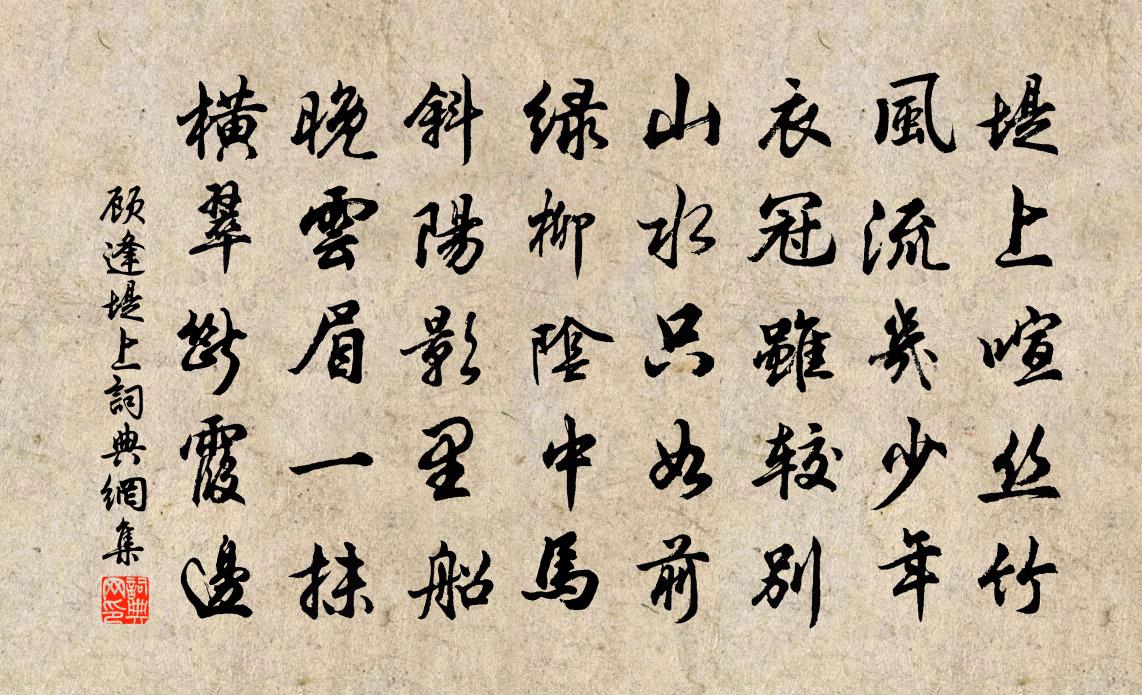 堤上喧丝竹
風流幾少年
衣冠雖较別
山水只如前
緑柳陰中馬
斜陽影里船
晚雲眉一抹
橫翠斷霞邊
顾逢堤上詞典網集
詞典网印